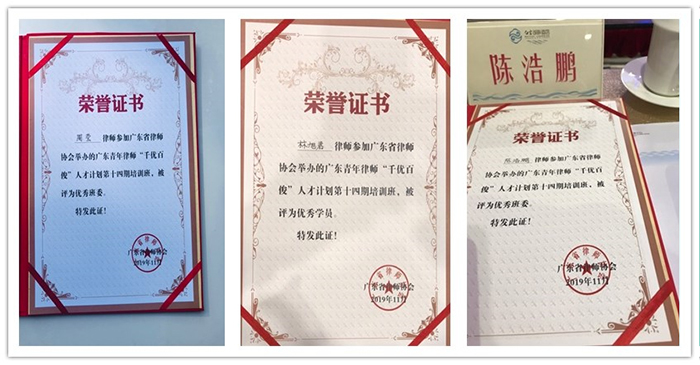 荣誉证书
周莹 律师参加广东省律师
协会举办的广东青年律师“千优百
俊”人才计划第十四期培训班，被
评为优秀班委。
特发此证！
广东省律师协会
2019年11月
荣誉证书
律师参加广东省律师
协会举办的广东青年律师“千优百
俊”人才计划第十四期培训班，被
评为优秀学员。
特发此证！
广东省律师协会
2019年11月
陈浩鹏
荣誉证书
陈浩鹏 律师参加广东省律师
协会举办的广东青年律师“千优百
俊”人才计划第十四期培训班，被
评为优秀班委。
特发此证！
广东省律师协会
2019年11月